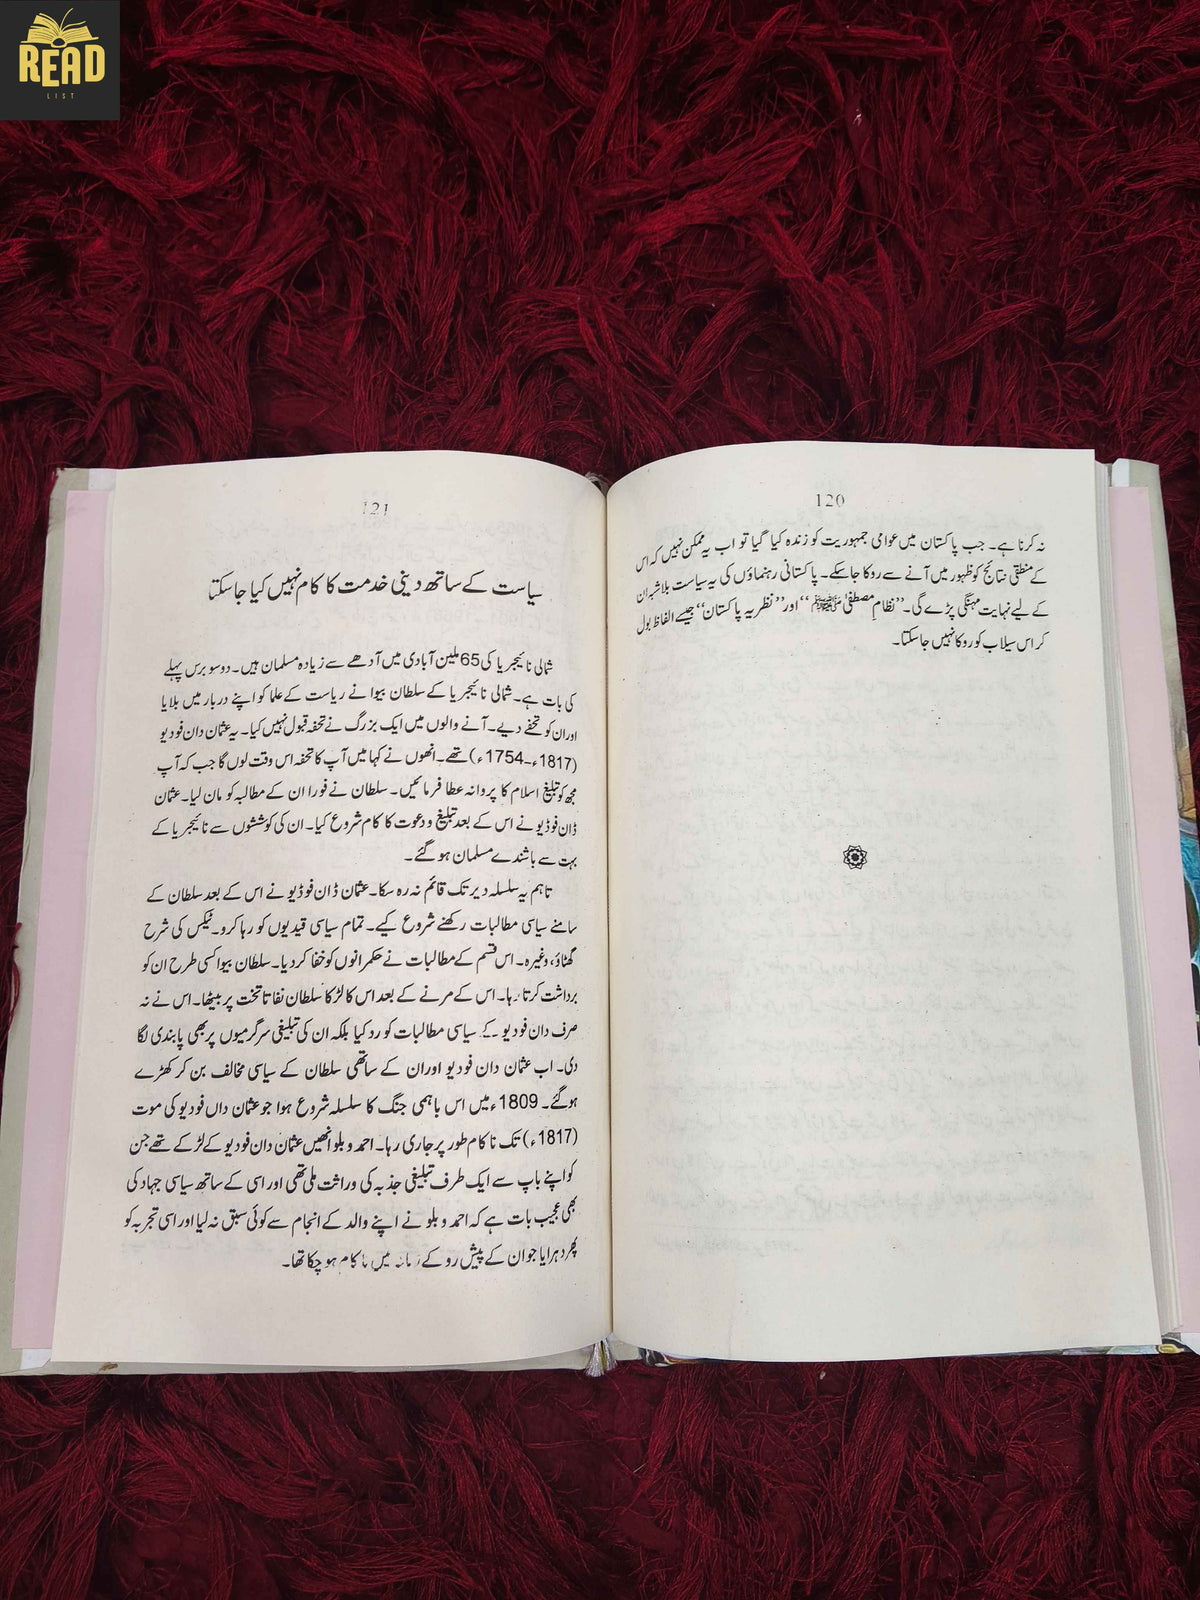 READ
LIST
120
نہ کرنا ہے۔ جب پاکستان میں عوامی جمہوریت کو زندہ کیا گیا تو اب یہ ممکن نہیں کہ اس
کے منطقی نتائج کو ظہور میں آنے سے روکا جاسکے۔ پاکستانی رہنماؤں کی یہ سیاست بلاشبہ ان
کے لیے نہایت مہنگی پڑے گی۔ ’’نظامِ مصطفیٰ ﷺ‘‘ اور ’’نظریہ پاکستان‘‘ جیسے الفاظ بول
کر اس سیلاب کو روکا نہیں جاسکتا۔
121
سیاست کے ساتھ دینی خدمت کا کام نہیں کیا جاسکتا
شمالی نائیجریا کی 65 ملین آبادی میں آدھے سے زیادہ مسلمان ہیں۔ دوسو برس پہلے
کی بات ہے۔ شمالی نائیجریا کے سلطان بیوا نے ریاست کے علما کو اپنے دربار میں بلایا
اور ان کو تحفے دیے۔ آنے والوں میں ایک بزرگ نے تحفہ قبول نہیں کیا۔ یہ عثمان دان فودیو
(1817ء۔1754ء) تھے۔ انھوں نے کہا میں آپ کا تحفہ اس وقت لوں گا جب کہ آپ
مجھ کو تبلیغ اسلام کا پروانہ عطا فرمائیں۔ سلطان نے فورا ان کے مطالبہ کو مان لیا۔ عثمان
ڈان فوڈیو نے اس کے بعد تبلیغ و دعوت کا کام شروع کیا۔ ان کی کوششوں سے نائیجریا کے
بہت سے باشندے مسلمان ہوگئے۔
تاہم یہ سلسلہ دیر تک قائم نہ رہ سکا۔ عثمان ڈان فوڈیو نے اس کے بعد سلطان کے
سامنے سیاسی مطالبات رکھنے شروع کیے۔ تمام سیاسی قیدیوں کو رہا کرو۔ ٹیکس کی شرح
گھٹاؤ، وغیرہ۔ اس قسم کے مطالبات نے حکمرانوں کو خفا کردیا۔ سلطان بیوا کسی طرح ان کو
برداشت کرتا رہا۔ اس کے مرنے کے بعد اس کا لڑکا سلطان نفاتا تخت پر بیٹھا۔ اس نے نہ
صرف دان فودیو کے سیاسی مطالبات کو رد کیا بلکہ ان کی تبلیغی سرگرمیوں پر بھی پابندی لگا
دی۔ اب عثمان دان فودیو اور ان کے ساتھی سلطان کے سیاسی مخالف بن کر کھڑے
ہوگئے۔ 1809ء میں اس باہمی جنگ کا سلسلہ شروع ہوا جو عثمان داں فودیو کی موت
(1817ء) تک ناکام طور پر جاری رہا۔ احمد وبلو انھیں عثمان دان فودیو کے لڑکے تھے جن
کو اپنے باپ سے ایک طرف تبلیغی جذبہ کی وراثت ملی تھی اور اسی کے ساتھ سیاسی جہاد کی
بھی عجیب بات ہے کہ احمد وبلو نے اپنے والد کے انجام سے کوئی سبق نہ لیا اور اسی تجربہ کو
پھر دہرایا جو ان کے پیش رو کے زمانہ میں ناکام ہوچکا تھا۔